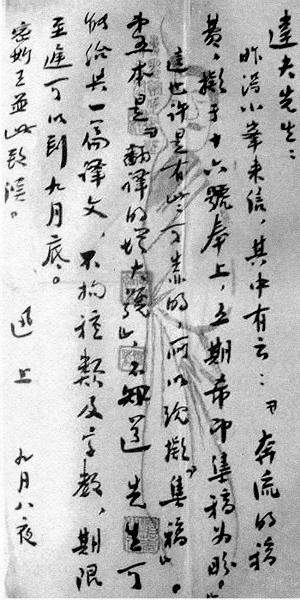 達夫先生：
昨得小峯来信，其中有云：『奔流的稿
費，擬于十六號奉上，五期希即集稿为盼。』
這也许是有些可靠的，所以現擬『集稿』。
第五本是『翻譯的增大號』，不知道 先生可
能给與一篇譯文，不拘種類及字數，期限
至遲可以到九月底。
密斯王並此致候。
迅上 九月八夜